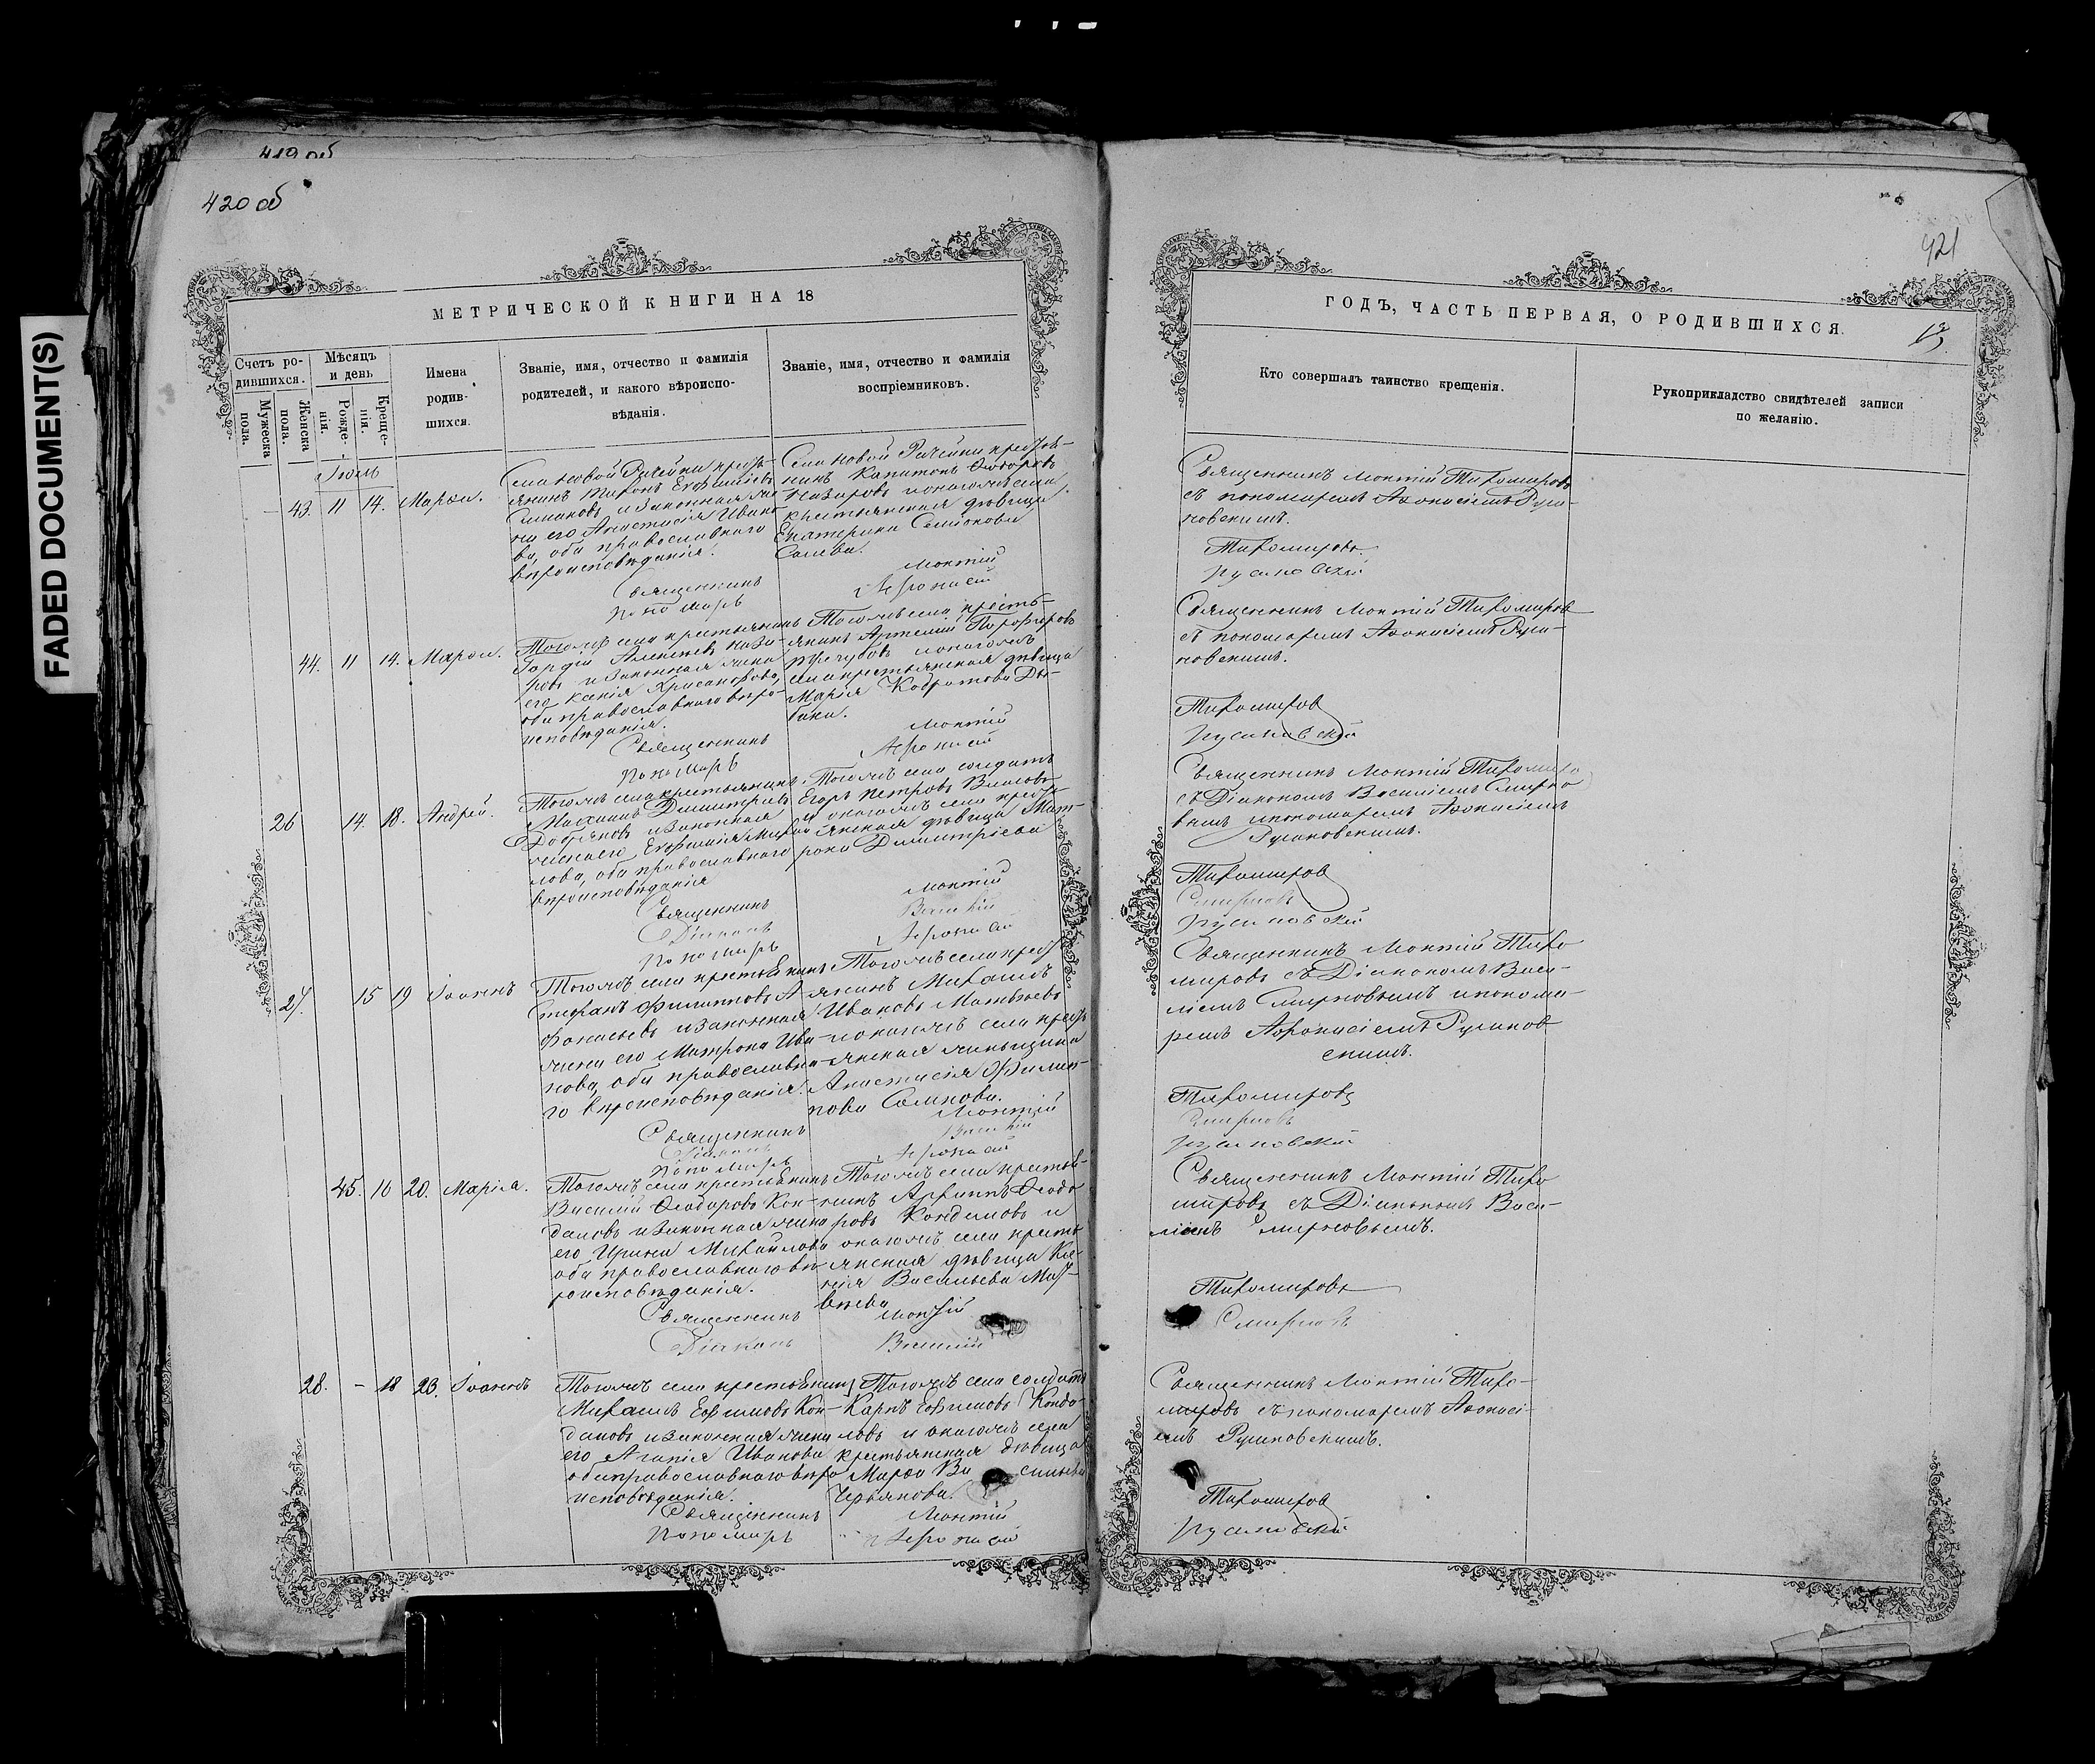 FADED DOCUMENT(S)
419 об
420 об
МЕТРИЧЕСКОЙ КНИГИ НА 18
Счетъ ро-
дившихся.
Мужеска
пола.
Женска
пола.
Мѣсяцъ
и день
Рожде-
нія.
Креще-
нія.
Имена
родив-
шихся.
Званіе, имя, отчество и фамилія
родителей, и какого вѣроиспо-
вѣданія.
Званіе, имя, отчество и фамилія
воспріемниковъ.
Іюль
43. 11 14. Марѳа.
Села Новой Рачейки кресть-
янинъ Тихонъ Евфимовъ
Симаковъ и законная же-
на его Анастасія Ивано-
ва, оба православнаго
вѣроисповѣданія.
Села Новой Рачейки кресть-
нинъ Капитонъ Ѳеодоровъ
Назаровъ и онагожъ села
крестьянская дѣвица
Екатерина Семіонова
Священникъ Монтій
Пономарь Афонасій
44. 11 14. Марѳа.
Тогожъ села крестьянинъ
Гордій Алексѣевъ Наза-
ровъ и законная жена
его Ксенія Хрисанфова,
оба православнаго вѣро-
исповѣданія.
Тогожъ села кресть-
янинъ Артемій Порфировъ
и онагожъ
села крестьянская дѣвица
Марія
Священникъ Монтій
Пономарь Афонасій
26 14. 18. Андрей.
Тогожъ села крестьянинъ
Димитріевъ
и законная
жена его Евфимія Михай-
лова, оба православнаго
вѣроисповѣданія
Тогожъ села солдатъ
Егоръ Петровъ Власовъ
и онагожъ села кресть-
янская дѣвица Мат-
рона Димитріева
Священникъ Монтій
Діаконъ Василій
Пономарь Афонасій
27. 15 19 Іоаннъ
Тогожъ села крестьянинъ
Стефанъ Филипповъ А-
фонасьевъ и законная
жена его Матрона Ива-
нова, оба православна-
го вѣроисповѣданія.
Тогожъ села кресть-
янинъ Михаилъ
Ивановъ Матвѣевъ
и онагожъ села кресть-
янская женьщина
Анастасія Филип-
пова Семнова.
Священникъ Монтій
Діаконъ Василій
Пономарь Афонасій
45. 16 20. Марія.
Тогожъ села крестьянинъ
Василій Ѳеодоровъ Кон-
даловъ и законная жена
его Ирина Михайлова
оба православнаго вѣ-
роисповѣданія.
Тогожъ села крестья-
нинъ Архиппъ Ѳеодо-
ровъ Кондаловъ и
онагожъ села кресть-
янская дѣвица Ксе-
нія Васильева Мат-
вѣева
Священникъ Монтій
Діаконъ Василій
28. – 18 23. Іоаннъ
Тогожъ села крестьянинъ
Михаилъ Евфимовъ Кон-
даловъ и законная жена
его Агапія Иванова
оба православнаго вѣро-
исповѣданія.
Тогожъ села солдатъ
Карпъ Евфимовъ Конда-
ловъ и онагожъ села
крестьянская дѣвица
Марѳа Васильева
Чернянова.
Священникъ Монтій
Пономарь Афонасій
421
ГОДЪ, ЧАСТЬ ПЕРВАЯ, О РОДИВШИХСЯ.
Кто совершалъ таинство крещенія.
Рукоприкладство свидѣтелей записи
по желанію.
Священникъ Монтій Тихомировъ
съ пономаремъ Афонасіемъ Руси-
новскимъ.
Тихомировъ
Русиновскій
Священникъ Монтій Тихомировъ
съ пономаремъ Афонасіемъ Руси-
новскимъ.
Тихомировъ
Русиновскій
Священникъ Монтій Тихомировъ
съ Діакономъ Василіемъ Смирно-
вымъ и пономаремъ Афонасіемъ
Русиновскимъ.
Тихомировъ
Смирновъ
Русиновскій
Священникъ Монтій Тихо-
мировъ съ Діакономъ Васи-
ліемъ Смирновымъ и понома-
ремъ Афонасіемъ Русинов-
скимъ.
Тихомировъ
Смирновъ
Русиновскій
Священникъ Монтій Тихо-
мировъ съ Діакономъ Васи-
ліемъ Смирновымъ.
Тихомировъ
Смирновъ
Священникъ Монтій Тихо-
мировъ съ пономаремъ Афонасі-
емъ Русиновскимъ.
Тихомировъ
Русиновскій